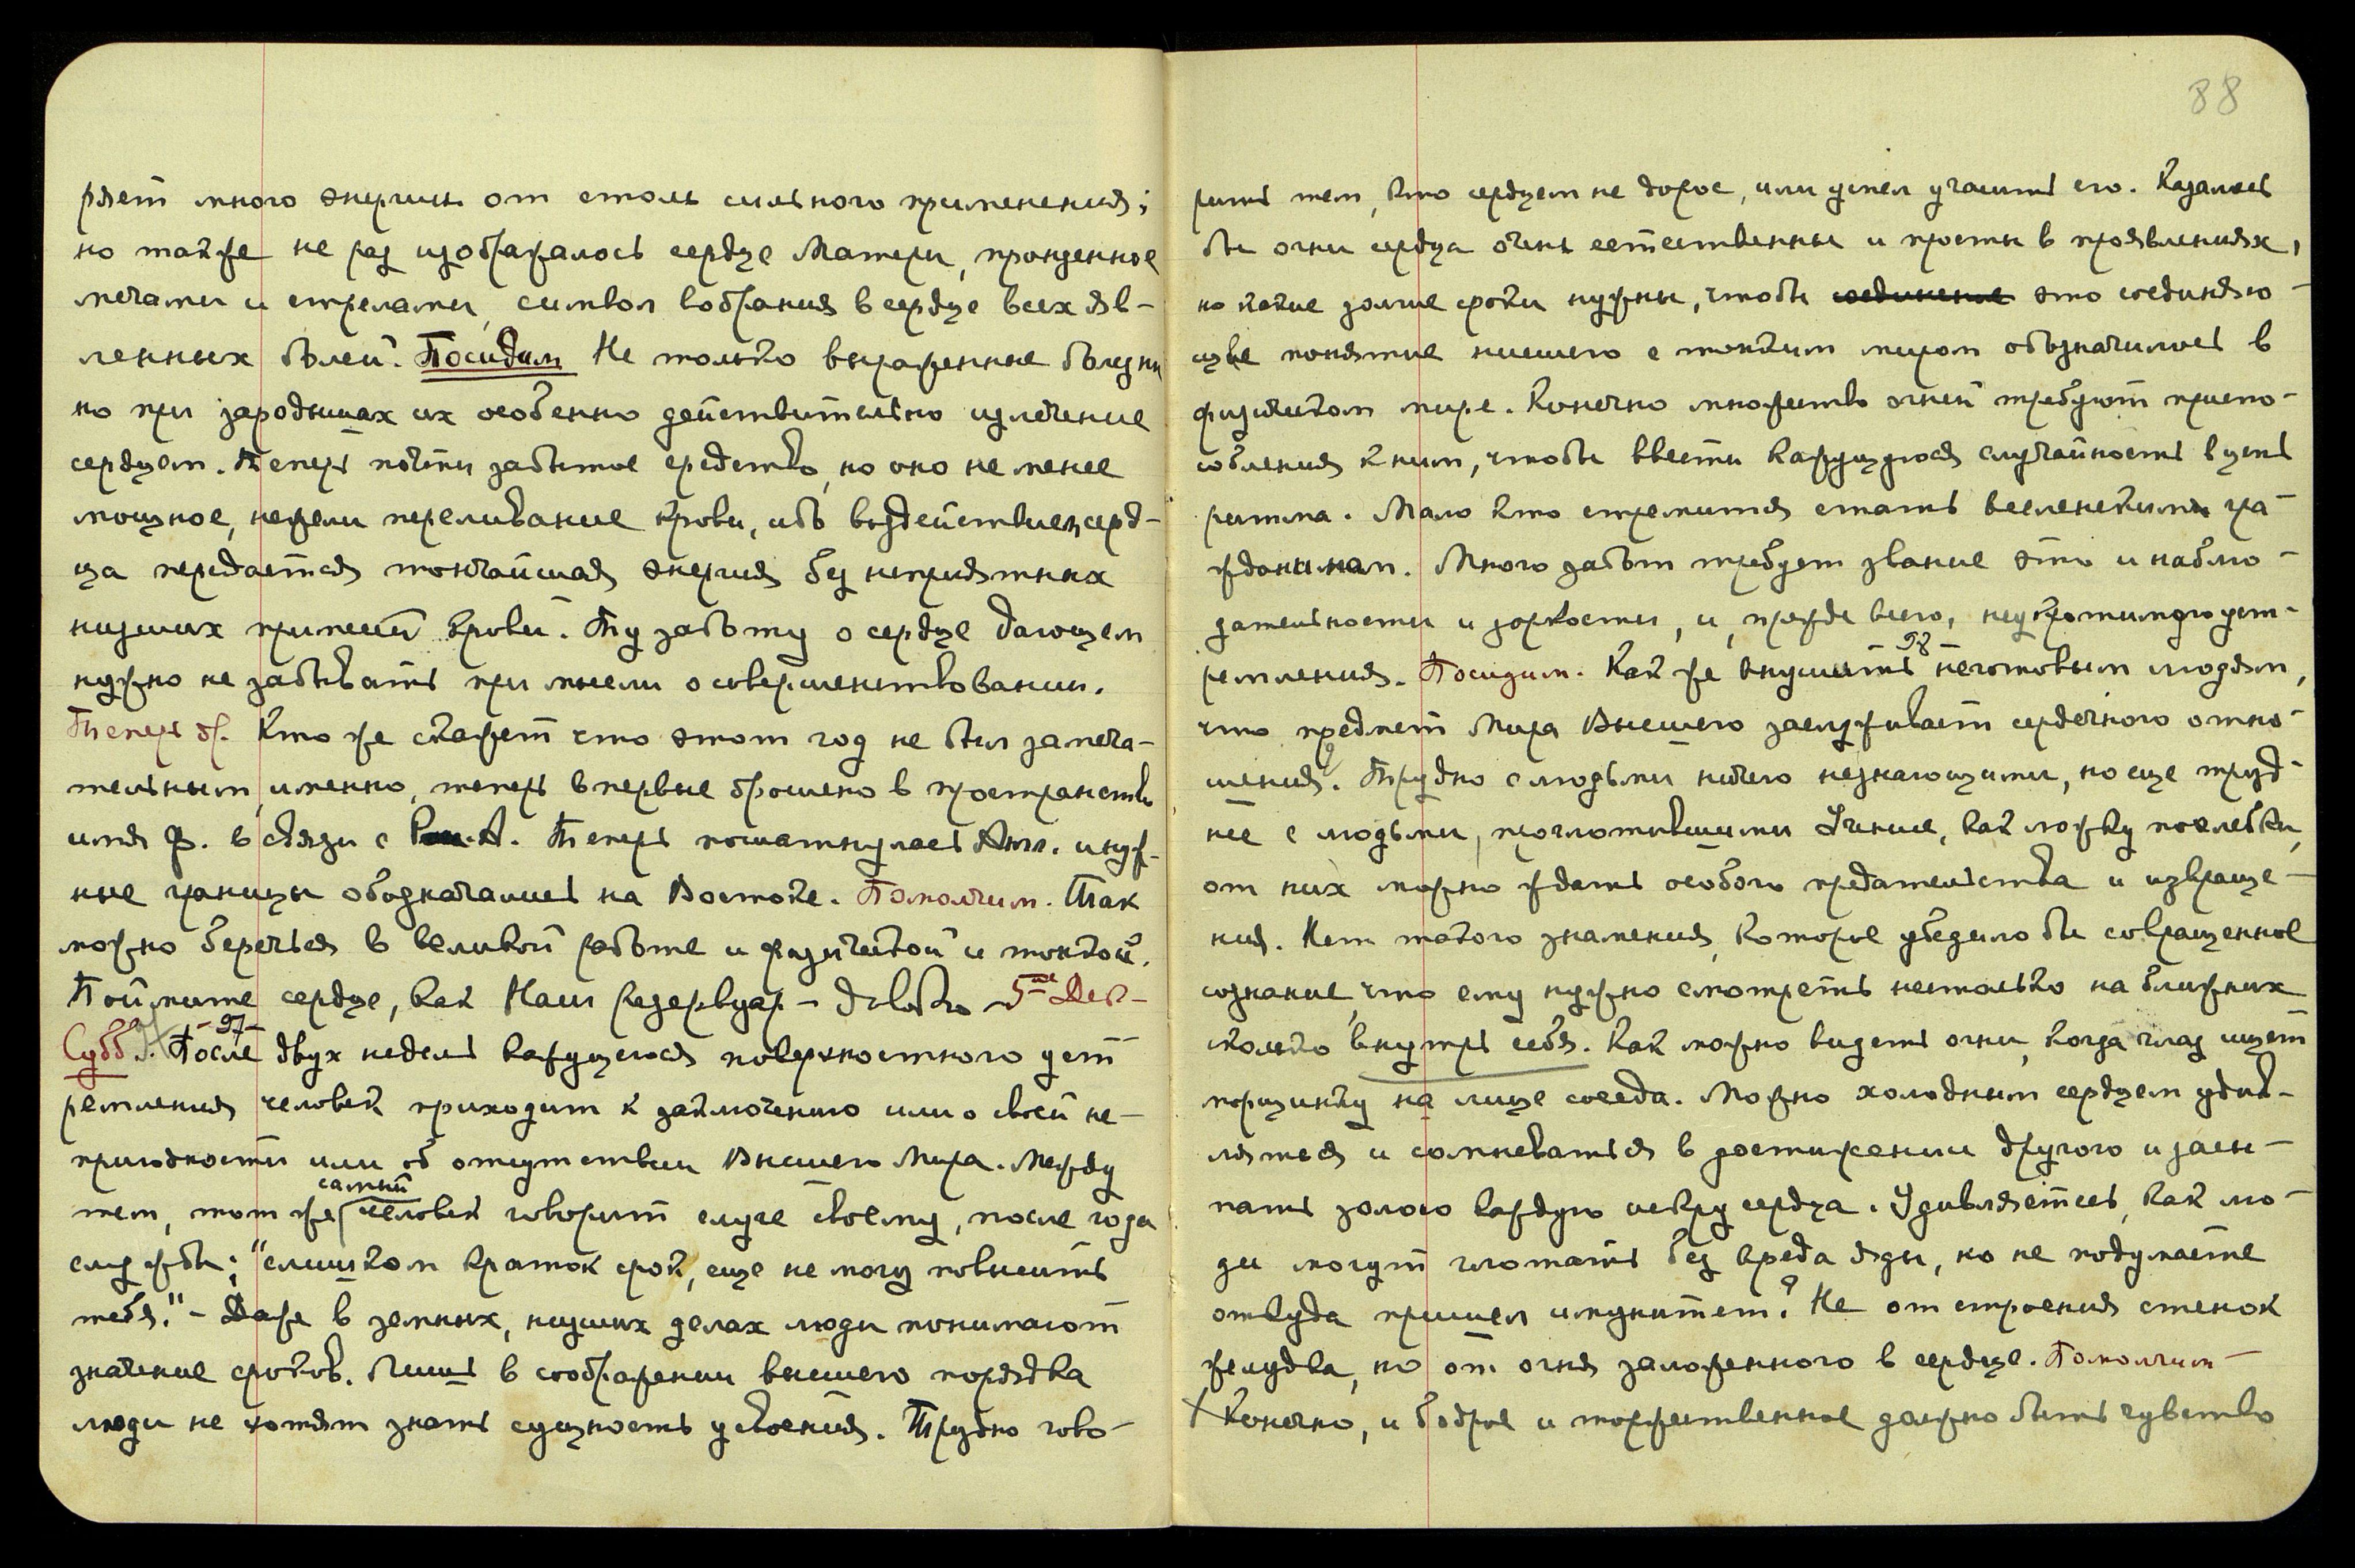 ряет много энергии от столь сильного применения;
но также не раз изображалось сердце Матери, пронзенное
мечами и стрелами, символ вобрания в сердце всех яв-
ленных болей. Посидим Не только выраженные болезни
но при зародышах их особенно действительно излечение
сердцем. Теперь почти забытое средство, но оно не менее
мощное, нежели переливание крови, ибо воздействием серд-
ца передается тончайшая энергия без неприятных
низших примесей крови. Ту заботу о сердце дающем
нужно не забывать при мысли о совершенствовании.
Теперь др. Кто же скажет что этот год не был замеча-
тельным, именно, теперь впервые брошено в пространство
имя Ф. в связи с А. Теперь пошатнулась Англ. и нуж-
ные границы обозначались на Востоке. Помолчим. Так
можно беречься в великой работе и физической и тонкой.
Поймите сердце, как Наш Резервуар – довольно – 5ое Дек –
Субб. – 97 – После двух недель кажущегося поверхностного уст
ремления человек приходит к заключению или о своей не-
пригодности или об отсутствии Высшего Мира. Между
тем, тот же самый человек говорит слуге своему, после года
службы; "слишком краток срок, еще не могу повысить
тебя." – Даже в земных, низших делах люди понимают
значение сроков. Лишь в соображении высшего порядка
люди не хотят знать сущность усвоения. Трудно гово-
88
рить тем, кто сердцем не дорос, или умел угасить его. Казалось
бы огни сердца очень естественны и просты в проявлениях,
но какие долгие сроки нужны, чтобы соединение это соединяю-
щее понятие высшего с тонким миром обозначилось в
физическом мире. Конечно множество огней требуют приспо-
собления к ним, чтобы ввести кажущуюся случайность в цепь
ритма. Мало кто стремится стать вселенским гра-
жданином. Много забот требует звание это и наблю-
дательности и зоркости, и, прежде всего, неукротимого уст-
ремления. Посидим. – 98 – Как же внушить неготовым людям,
что предмет Мира Высшего заслуживает сердечного отно-
шения? Трудно с людьми ничего незнающими, но еще труд-
нее с людьми, проглотившими Учение, как ложку похлебки,
от них можно ждать особого предательства и извраще-
ния. Нет такого знамения, которое убедило бы совращенное
сознание, что ему нужно смотреть нестолько на ближних
сколько внутрь себя. Как можно видеть огни, когда глаз ищет
морщинку на лице соседа. Можно холодным сердцем удив-
ляться и сомневаться в достижении другого и засы-
пать золою каждую искру сердца. Удивляетесь, как лю-
ди могут глотать без вреда яды, но не подумаете
откуда пришел иммунитет? Не от строения стенок
желудка, но от огня заложенного в сердце. Помолчим –
Конечно, и бодрое и торжественное должно быть чувство